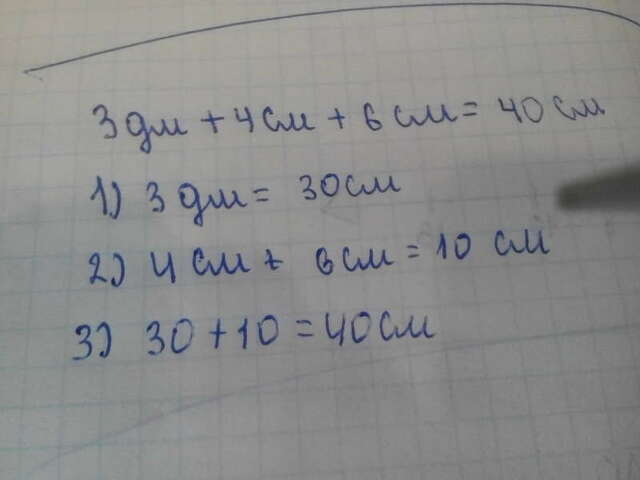 3 дм + 4 см + 6 см = 40 см
1) 3 дм = 30 см
2) 4 см + 6 см = 10 см
3) 30 + 10 = 40 см